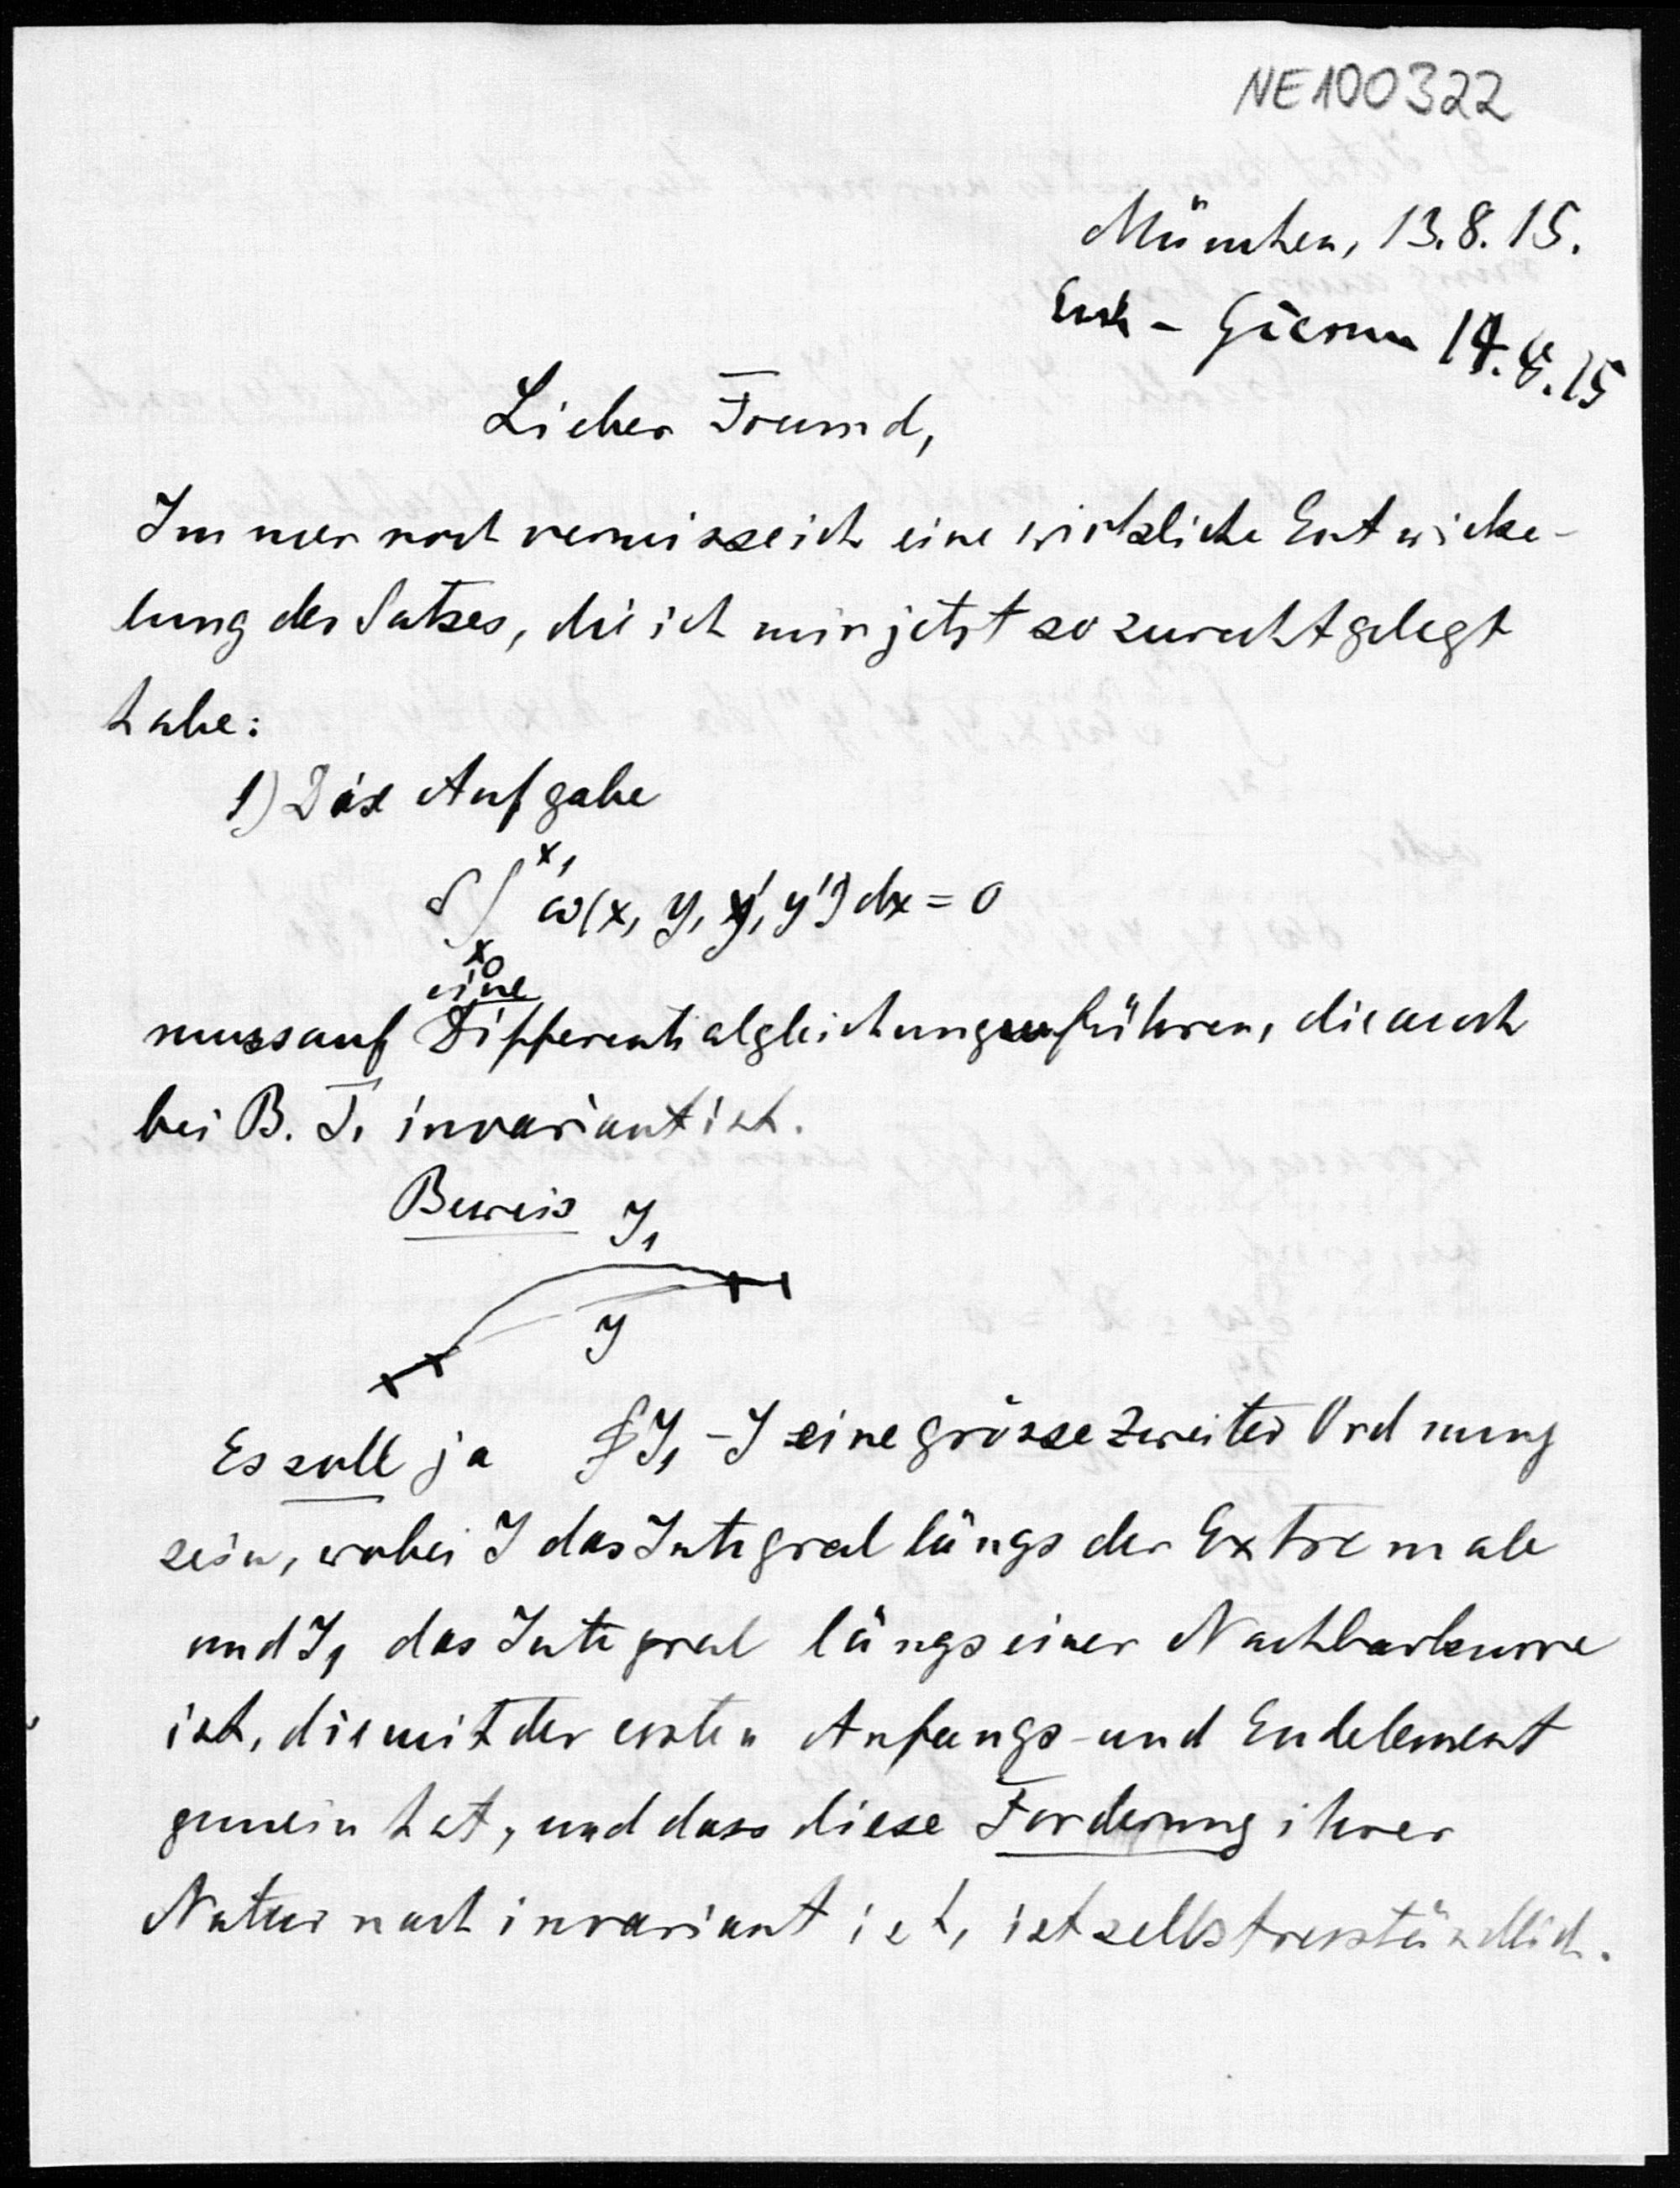 NE100322
München, 13.8.15.
14.8.15
Lieber Freund,
Immer noch vermisse ich eine wirkliche Entwicke-
lung des Satzes, die ich mir jetzt so zurechtgelegt
habe:
1) Die Aufgabe
δ∫ ω(x, y, y', y'') dx = 0
x₁
x₀
eine
muss auf Differentialgleichung führen, die auch
bei B. T. invariant ist.
Beweis J₁
J
Es soll ja J₁ - J eine grösse zweiter Ordnung
sein, wobei J das Integral längs der Extremale
und J₁ das Integral längs einer Nachbarkurve
ist, die mit der ersten Anfangs- und Endelement
gemein hat, und dass diese Forderung ihrer
Natur nach invariant ist, ist selbstverständlich.